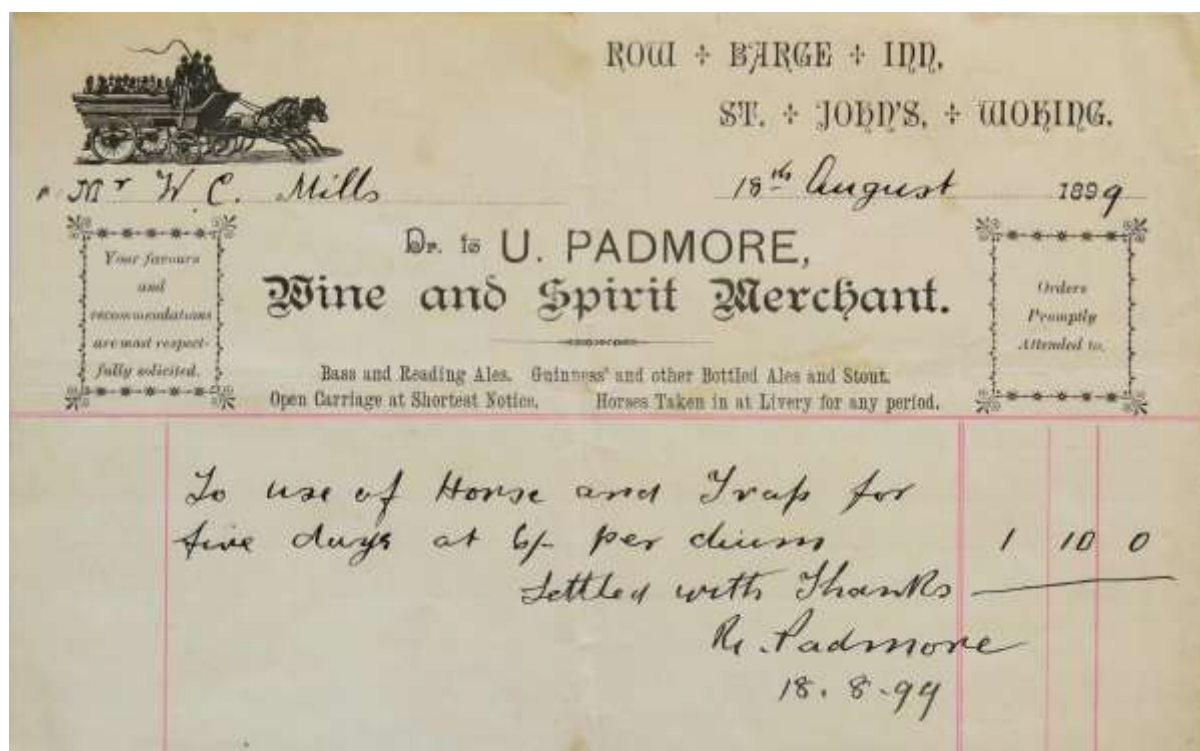 ROW + BARGE + INN,
ST. + JOHN'S, + WOKING.
Mr W. C. Mills
18th August 1899
Dr. to U. PADMORE,
Wine and Spirit Merchant.
Your favours
and
recommendations
are most respect-
fully solicited.
Orders
Promptly
Attended to.
Bass and Reading Ales. Guinness' and other Bottled Ales and Stout.
Open Carriage at Shortest Notice. Horses Taken in at Livery for any period.
To use of Horse and Trap for
five days at 6/- per diem 1 10 0
Settled with Thanks
Padmore
18. 8. 99